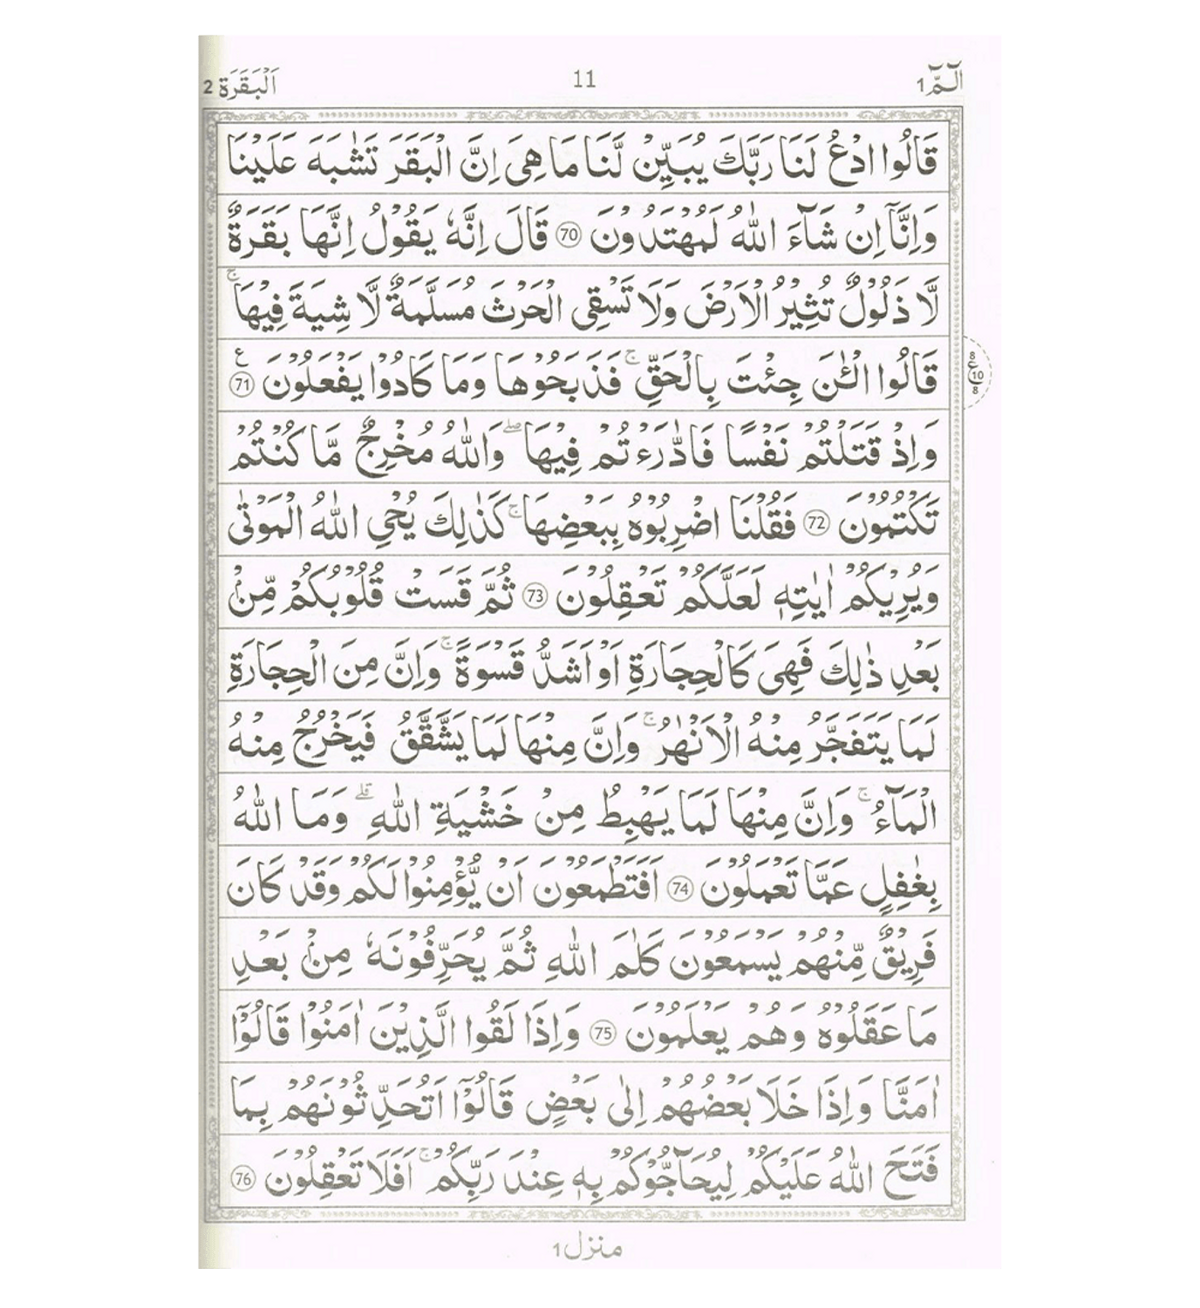 الٓمّٓ 1 11 اَلْبَقَرَة 2
قَالُوا ادْعُ لَنَا رَبَّكَ يُبَيِّنْ لَّنَا مَا هِىَ اِنَّ الْبَقَرَ تَشٰبَهَ عَلَيْنَا
وَاِنَّاۤ اِنْ شَآءَ اللّٰهُ لَمُهْتَدُوْنَ 70 قَالَ اِنَّهٗ يَقُوْلُ اِنَّهَا بَقَرَةٌ
لَّا ذَلُوْلٌ تُثِيْرُ الْاَرْضَ وَلَا تَسْقِى الْحَرْثَ مُسَلَّمَةٌ لَّا شِيَةَ فِيْهَا ۚ
قَالُوا الْـٰٔنَ جِئْتَ بِالْحَقِّ ۚ فَذَبَحُوْهَا وَمَا كَادُوْا يَفْعَلُوْنَ 71 ع
8 ع 10 8
وَاِذْ قَتَلْتُمْ نَفْسًا فَادّٰرَءْتُمْ فِيْهَا ۖ وَاللّٰهُ مُخْرِجٌ مَّا كُنْتُمْ
تَكْتُمُوْنَ 72 فَقُلْنَا اضْرِبُوْهُ بِبَعْضِهَا ۚ كَذٰلِكَ يُحْىِ اللّٰهُ الْمَوْتٰى
وَيُرِيْكُمْ اٰيٰتِهٖ لَعَلَّكُمْ تَعْقِلُوْنَ 73 ثُمَّ قَسَتْ قُلُوْبُكُمْ مِّنْۢ
بَعْدِ ذٰلِكَ فَهِىَ كَالْحِجَارَةِ اَوْ اَشَدُّ قَسْوَةً ۚ وَاِنَّ مِنَ الْحِجَارَةِ
لَمَا يَتَفَجَّرُ مِنْهُ الْاَنْهٰرُ ۚ وَاِنَّ مِنْهَا لَمَا يَشَّقَّقُ فَيَخْرُجُ مِنْهُ
الْمَآءُ ۚ وَاِنَّ مِنْهَا لَمَا يَهْبِطُ مِنْ خَشْيَةِ اللّٰهِ ۗ وَمَا اللّٰهُ
بِغٰفِلٍ عَمَّا تَعْمَلُوْنَ 74 اَفَتَطْمَعُوْنَ اَنْ يُّؤْمِنُوْا لَكُمْ وَقَدْ كَانَ
فَرِيْقٌ مِّنْهُمْ يَسْمَعُوْنَ كَلٰمَ اللّٰهِ ثُمَّ يُحَرِّفُوْنَهٗ مِنْۢ بَعْدِ
مَا عَقَلُوْهُ وَهُمْ يَعْلَمُوْنَ 75 وَاِذَا لَقُوا الَّذِيْنَ اٰمَنُوْا قَالُوْۤا
اٰمَنَّا وَاِذَا خَلَا بَعْضُهُمْ اِلٰى بَعْضٍ قَالُوْۤا اَتُحَدِّثُوْنَهُمْ بِمَا
فَتَحَ اللّٰهُ عَلَيْكُمْ لِيُحَآجُّوْكُمْ بِهٖ عِنْدَ رَبِّكُمْ ۚ اَفَلَا تَعْقِلُوْنَ 76
منزل 1